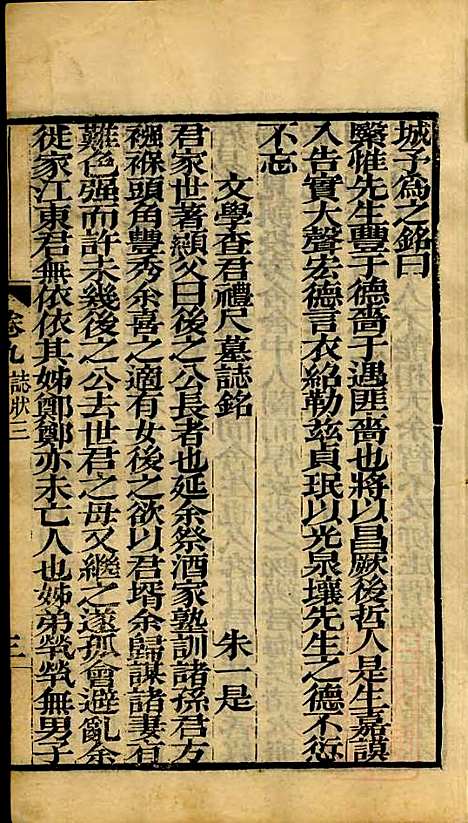 城予為之銘曰
繄惟先生豐于德嗇于遇匪嗇也將以昌厥後哲人是生嘉謨
入告實大聲宏德言衣紹勒茲貞珉以光泉壤先生之德不愆
不忘
文學查君禮尺墓誌銘
朱一是
君家世著顯父曰後之公長者也延余祭酒家塾訓諸孫君方
襁褓頭角豐秀余喜之適有女後之欲以君壻余歸謀諸妻有
難色强而許未幾後之公去世君之母又繼之遂孤會避亂余
徙家江東君無依依其姊鄭鄭亦未亡人也姊弟煢煢無男子
卷九
誌狀三
三